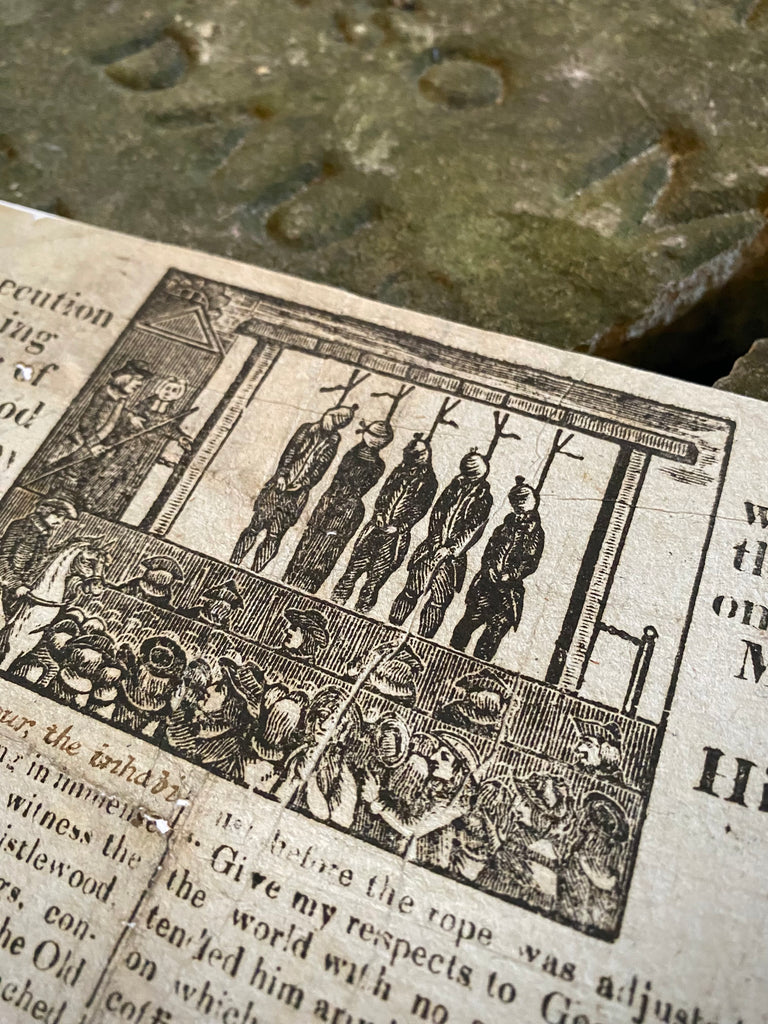 ecution
ing
of
od
w
on
M
Hi
our, the inhabi
ng in immense
witness the
istlewood,
gs, con-
he Old
ched
not before the rope was adjust
Give my respects to Ge
the world with no
tended him
on which
coff